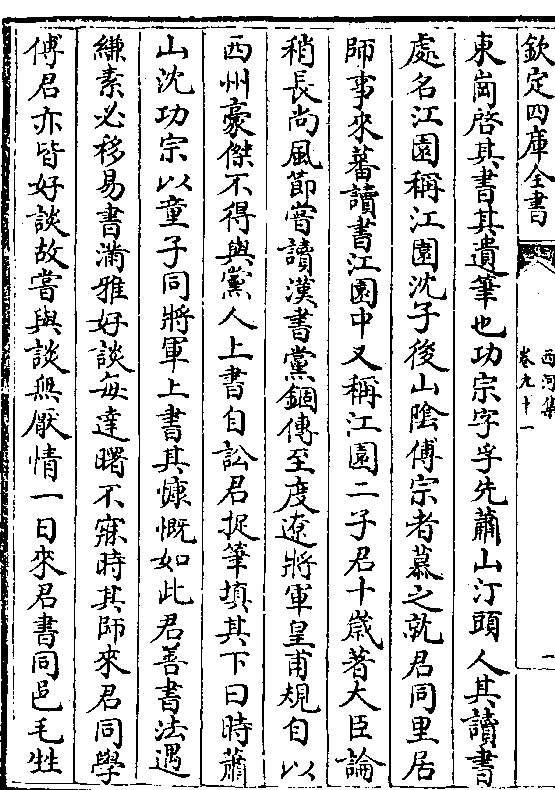 欽定四庫全書
西河集
卷九十一
一
東崗啓其書其遺筆也功宗字孚先蕭山汀頭人其讀書
處名江園稱江園沈子後山隂傅宗者慕之就君同里居
師事來蕃讀書江園中又稱江園二子君十歲著大臣論
稍長尚風節嘗讀漢書黨錮傳至度遼將軍皇甫規自以
西州豪傑不得與黨人上書自訟君捉筆填其下曰時蕭
山沈功宗以童子同將軍上書其慷慨如此君善書法遇
縑素必移易書滿雅好談每達曙不寐時其師來君同學
傅君亦皆好談故嘗與談無厭情一日來君書同邑毛甡